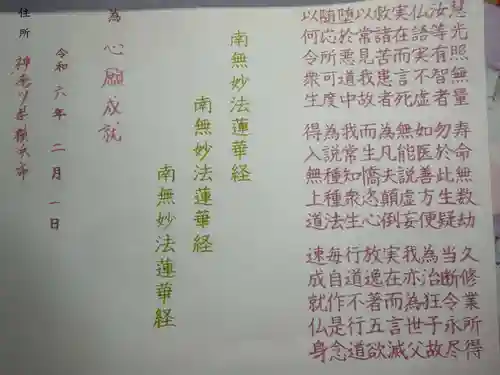 慧光照無量 寿命無数劫 久修業所得
汝等有智者 勿於此生疑 当断令永尽
仏語実不虚 如医善方便 為治狂子故
実在而言死 無能説虚妄 我亦為世父
救諸苦患者 為凡夫顛倒 実在而言滅
以常見我故 而生憍恣心 放逸著五欲
堕於悪道中 我常知衆生 行道不行道
随応所可度 為説種種法 毎自作是念
以何令衆生 得入無上道 速成就仏身
南無妙法蓮華経
南無妙法蓮華経
南無妙法蓮華経
為 心願成就
令和六年二月一日
住所 神奈川県